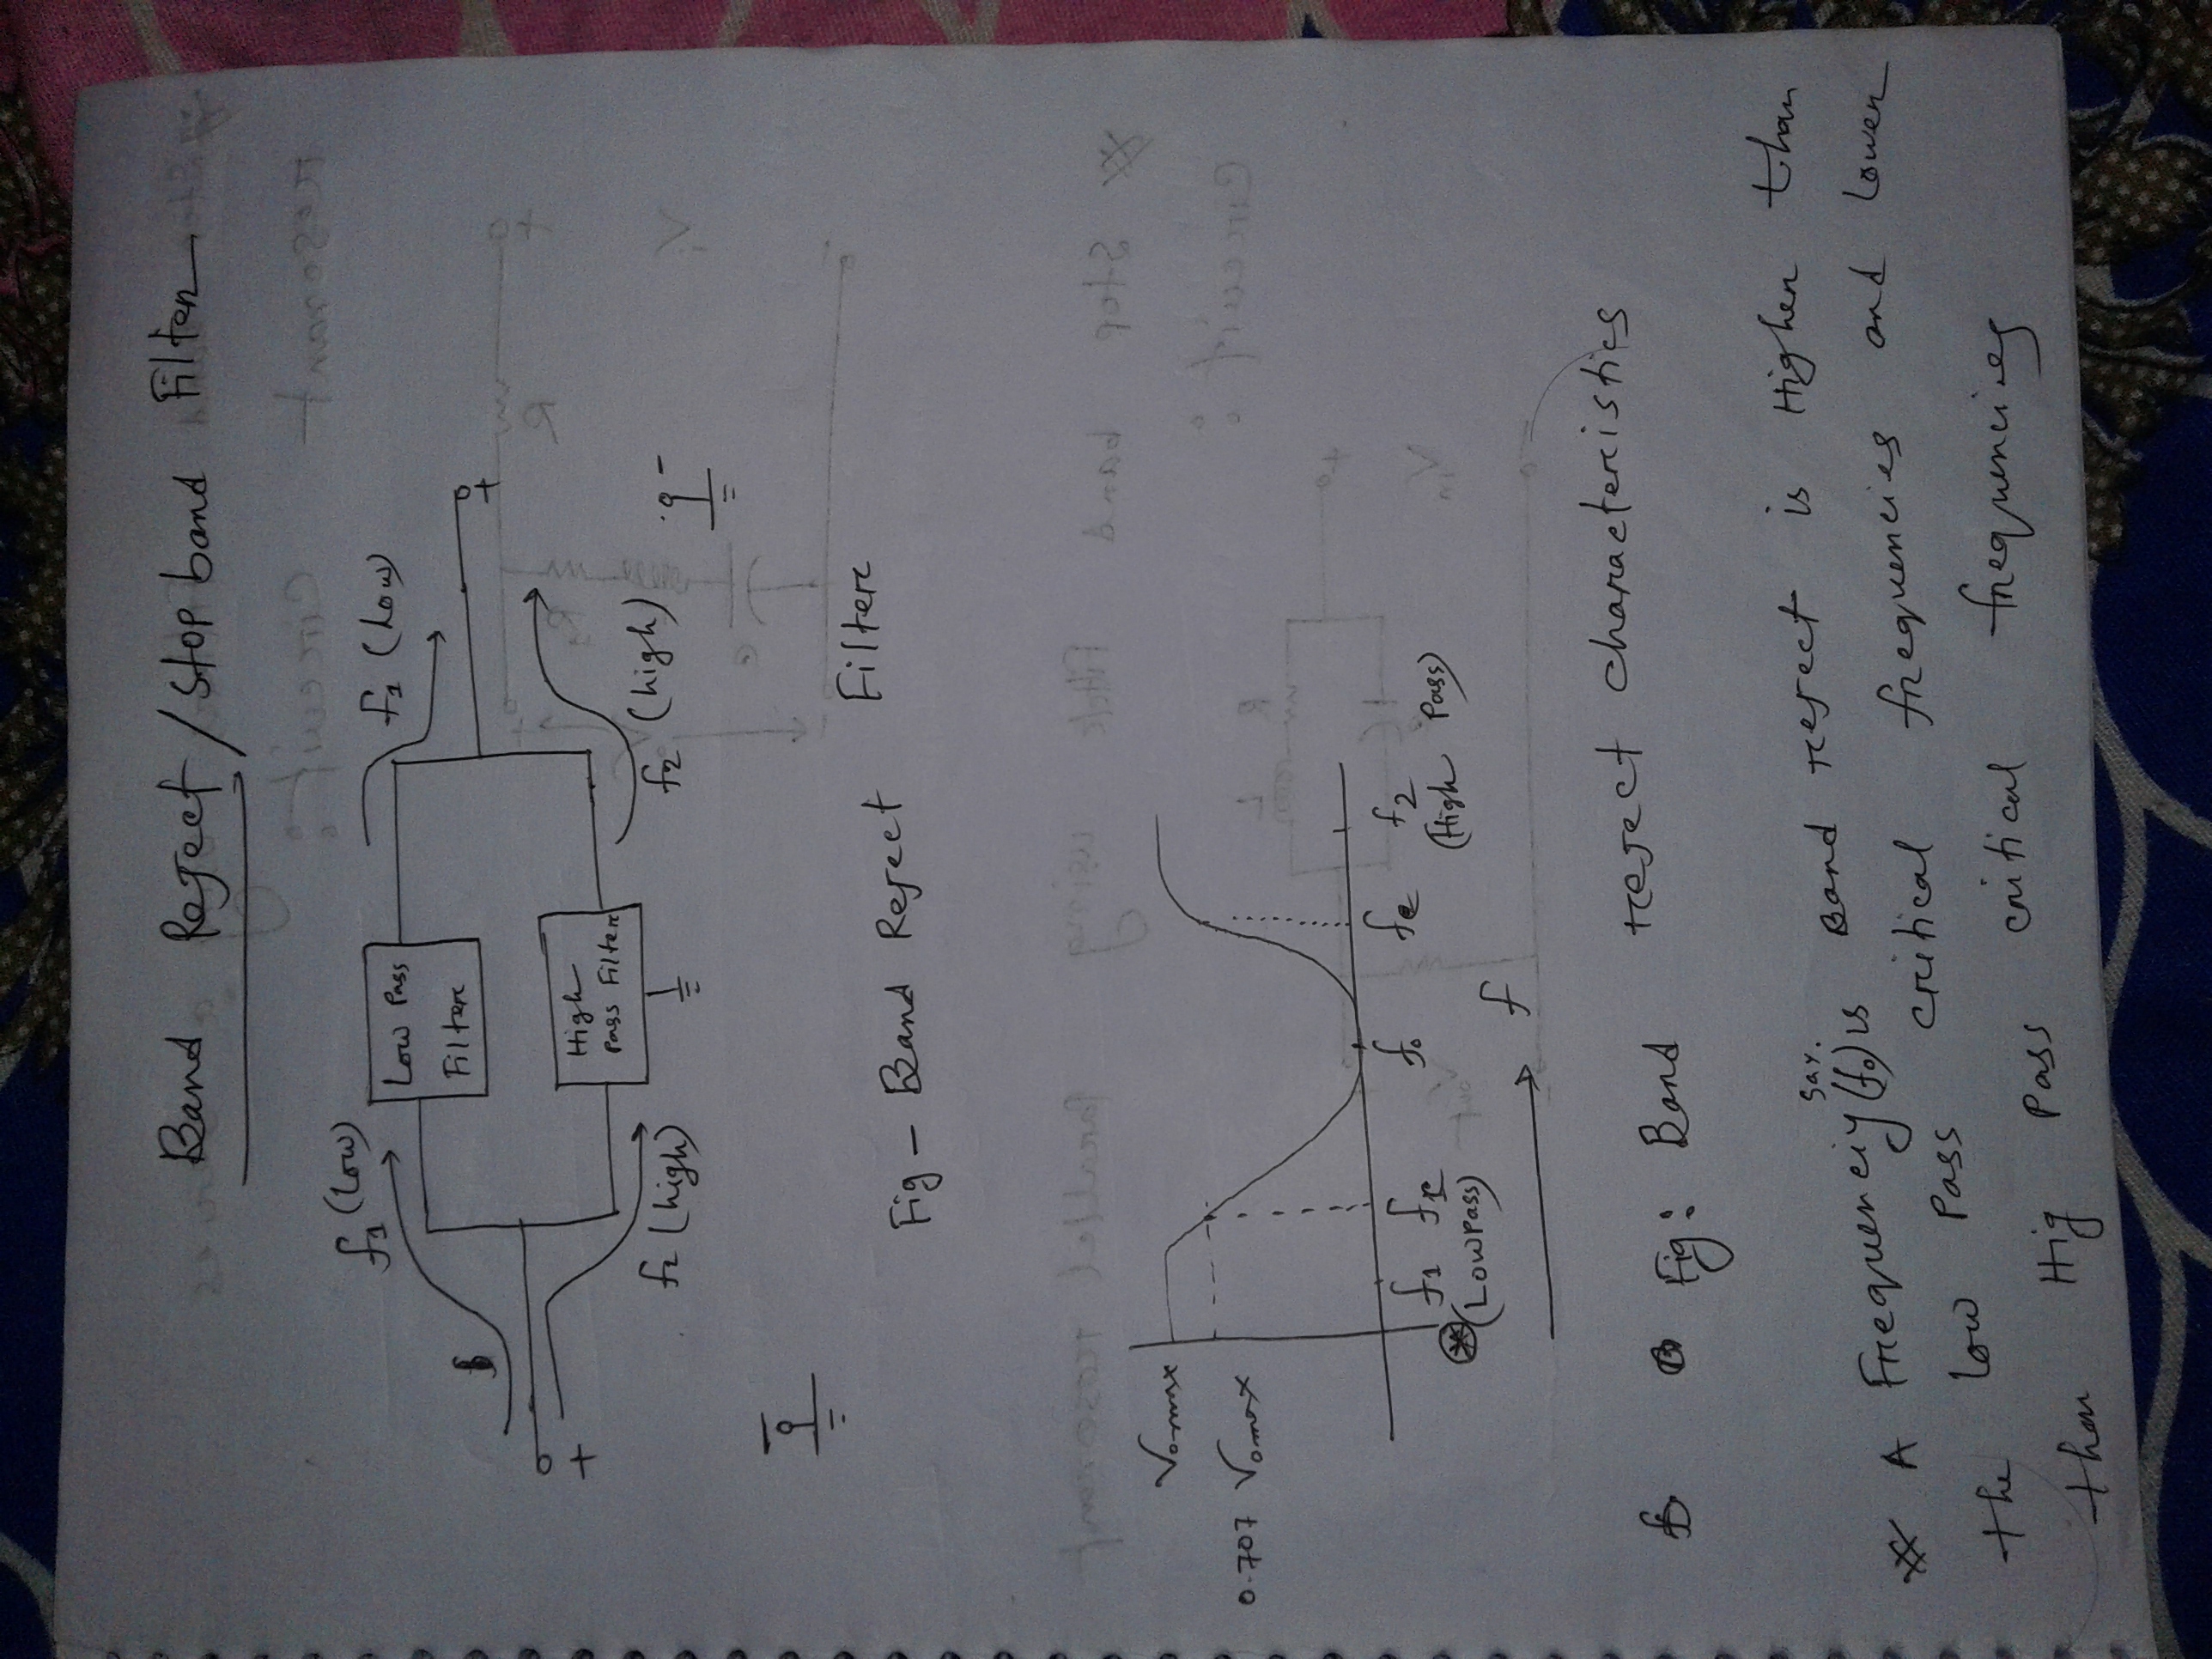 Band Reject / Stop band Filter
f1 (Low)
Low Pass
Filter
f1 (Low)
+
+
High
Pass Filter
f2 (high)
f2 (high)
-
-
Fig - Band Reject Filter
Vomax
0.707 Vomax
f1
fo
f2
(Low Pass)
(High Pass)
f
Fig: Band reject characteristics
say.
A Frequenciy (fo) is Band reject is Higher than
the low Pass critical frequencies and lower
than Hig Pass critical frequencies